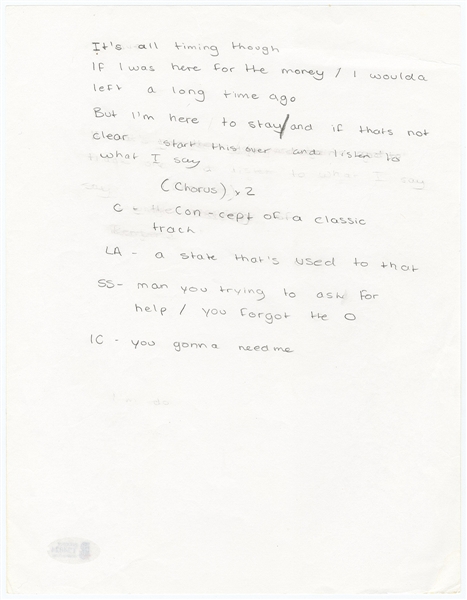 It's all timing though
If I was here for the money / I woulda
left a long time ago
But I'm here to stay/and if thats not
clear start this over and listen to
what I say
(Chorus) x 2
C - Con-cept of a classic
track
LA - a state that's used to that
SS- man you trying to ask for
help / you forgot the O
IC - you gonna need me